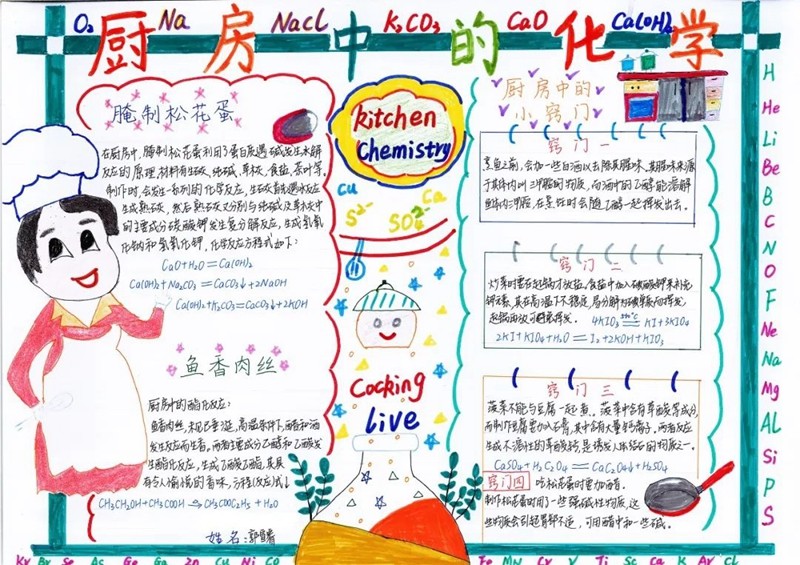 O₂ Na Nacl K₂CO₃ CaO Ca(OH)₂
厨房中的化学
腌制松花蛋
在厨房中,腌制松花蛋利用了蛋白质遇碱发生水解
反应的原理,材料有生石灰、纯碱、草灰、食盐、茶叶等。
制作时,会发生一系列的化学反应,生石灰首先遇水反应
生成熟石灰,然后熟石灰又分别与纯碱及草灰中
的主要成分碳酸钾发生复分解反应,生成氢氧
化钠和氢氧化钾,化学反应方程式如下:
CaO+H₂O=Ca(OH)₂
Ca(OH)₂+Na₂CO₃=CaCO₃↓+2NaOH
Ca(OH)₂+K₂CO₃=CaCO₃↓+2KOH
鱼香肉丝
厨房中的酯化反应:
鱼香肉丝,未見已垂涎,高温条件下,醋和酒
发生反应而生香。两者主成分乙醇和乙酸发
生酯化反应,生成乙酸乙酯,其具
有令人愉悦的香味,方程反应式↓
CH₃CH₂OH+CH₃COOH⇌CH₃COOC₂H₅+H₂O
姓名:
kitchen
Chemistry
Cu Ca
S²⁻ SO₄²⁻
Cocking
live
厨房中的
小窍门
窍门一
烹鱼之前,会加一些白酒以去除其腥味,其腥味来源
于其体内叫三甲胺的物质,而酒中的乙醇能溶解
鱼体内三甲胺,在烹饪时会随乙醇一起挥发出去。
窍门二
炒菜时要在起锅才放盐。食盐中加入碘酸钾来补充
钾元素,其在高温下不稳定,易分解为碘单质而挥发
4KIO₃=KI+3KIO₄
2KI+KIO₄+H₂O=I₂+2KOH+KIO₃
窍门三
菠菜不能与豆腐一起煮。菠菜中含有草酸等成分,
而制作豆腐要加入石膏,其中含有大量钙离子。两者反应
生成不溶性的草酸钙,是诱发人体结石的物质之一。
CaSO₄+H₂C₂O₄=CaC₂O₄↓+H₂SO₄
窍门四 吃松花蛋时要加醋。
制作松花蛋时用了一些强碱性物质,这
些物质会引起胃部不适,可用醋中和一些碱。
H
He
Li
Be
B
C
N
O
F
Ne
Na
Mg
AL
Si
P
S
Kr Br Se As Ge Ga Zn Cu Ni Co
Fe Mn Cr V Ti Sc Ca K Ar Cl